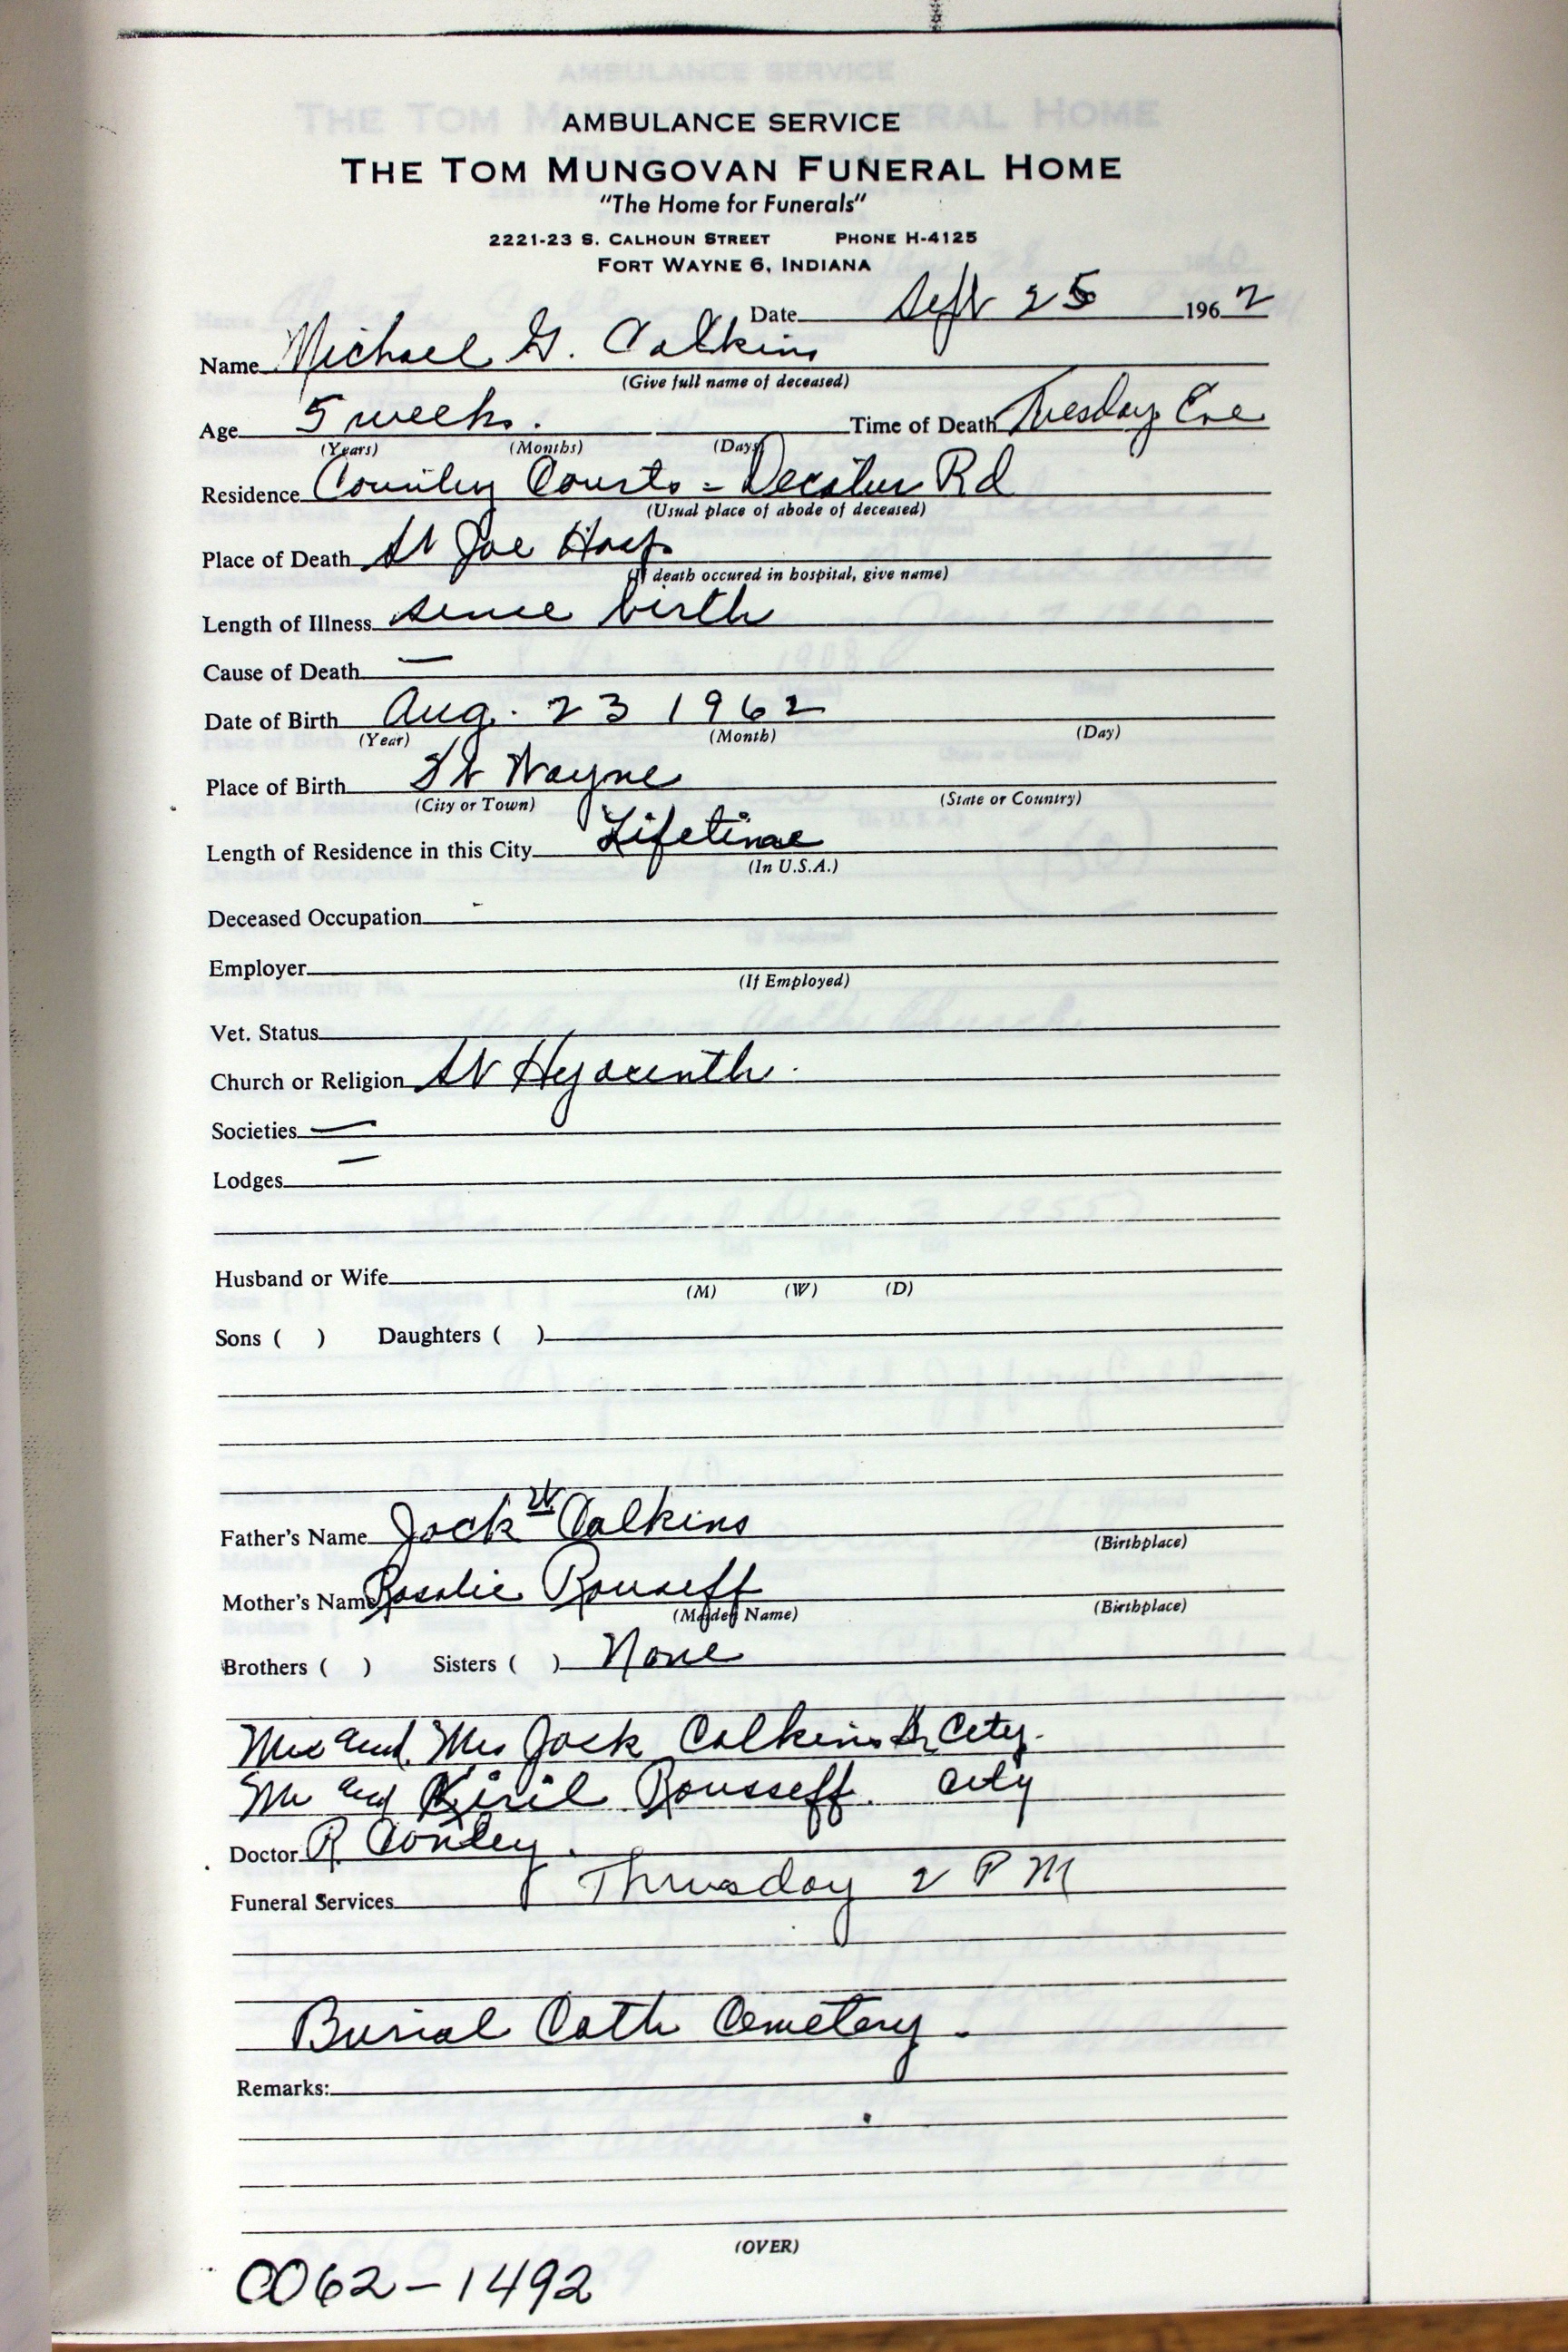 AMBULANCE SERVICE
THE TOM MUNGOVAN FUNERAL HOME
"The Home for Funerals"
2221-23 S. CALHOUN STREET PHONE H-4125
FORT WAYNE 6, INDIANA
Date Sept 25 1962
Name Michael G. Calkins
(Give full name of deceased)
Age 5 weeks. Time of Death Tuesday Eve
(Years) (Months) (Days)
Residence Courts - Decatur Rd
(Usual place of abode of deceased)
Place of Death St Joe Hosp
(If death occured in hospital, give name)
Length of Illness since birth
Cause of Death —
Date of Birth Aug. 23 1962
(Year) (Month) (Day)
Place of Birth Ft Wayne
(City or Town) (State or Country)
Length of Residence in this City Lifetime
(In U.S.A.)
Deceased Occupation -
Employer
(If Employed)
Vet. Status
Church or Religion St Hyacinth.
Societies —
Lodges —
Husband or Wife
(M) (W) (D)
Sons ( ) Daughters ( )
Father's Name Jack W Calkins
(Birthplace)
Mother's Name Rosalie Rouseff
(Maiden Name) (Birthplace)
Brothers ( ) Sisters ( ) None
Mr and Mrs Jack Calkins Sr City.
Mr and Kiril Rousseff. City
Doctor R Conley.
Funeral Services Thursday 2 PM
Burial Cath Cemetery.
Remarks:
(OVER)
0062-1492